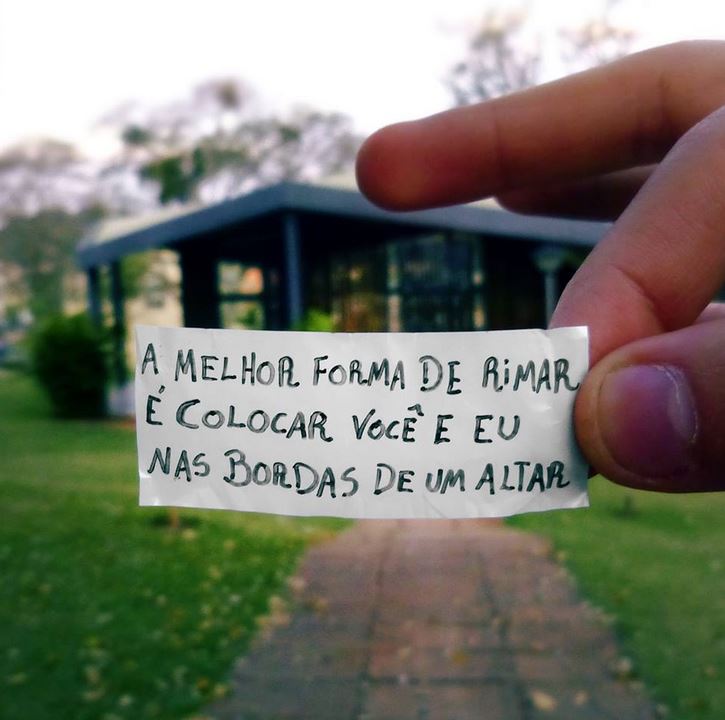 A MELHOR FORMA DE RiMAR
É COLOCAR VOCÊ E EU
NAS BORDAS DE UM ALTAR